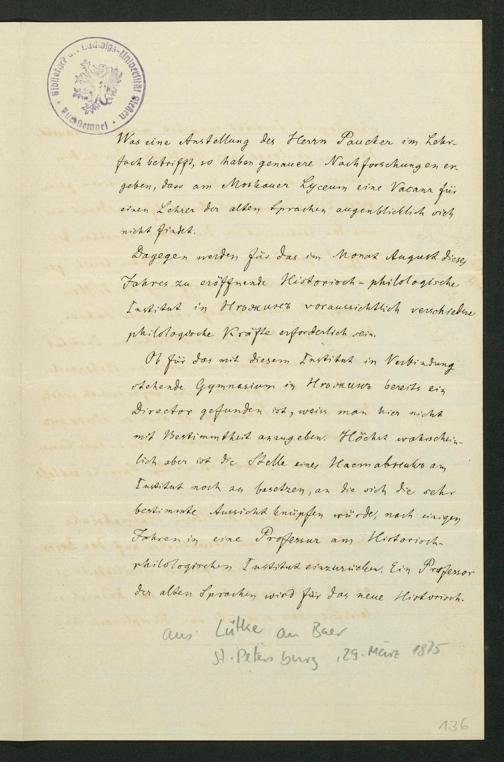 Bibliothek der Ludwigs-Universität Gießen
Was eine Anstellung des Herrn Paucker im Lehr-
fach betrifft, so haben genauere Nachforschungen er-
geben, dass am Moskauer Lyceum eine Vacanz für
einen Lehrer der alten Sprachen augenblicklich sich
nicht findet.
Dagegen werden für das im Monat August dieses
Jahres zu eröffnende Historisch-philologische
Institut in voraussichtlich verschiedene
philologische Kräfte erforderlich sein.
Ob für das mit diesem Institut in Verbindung
stehende Gymnasium in bereits ein
Director gefunden ist, weiss man hier nicht
mit Bestimmtheit anzugeben. Höchst wahrschein-
lich aber ist die Stelle eines am
Institut noch zu besetzen, an die sich die sehr
bestimmte Aussicht knüpfen würde, nach einigen
Jahren in eine Professur am Historisch-
philologischen Institut einzurücken. Ein Professor
der alten Sprachen wird für das neue Historisch-
aus Lütke an Baer
St. Petersburg, 29. März 1875
136